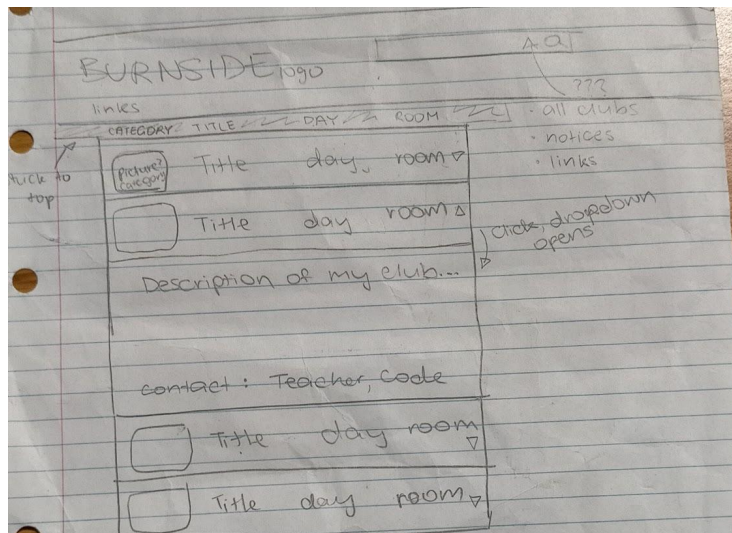 BURNSIDE logo
???
links
· all clubs
CATEGORY TITLE DAY ROOM
· notices
· links
stuck to top
Picture? category
Title day, room
Title day room
click, dropdown opens
Description of my club...
contact : Teacher, Code
Title day room
Title day room